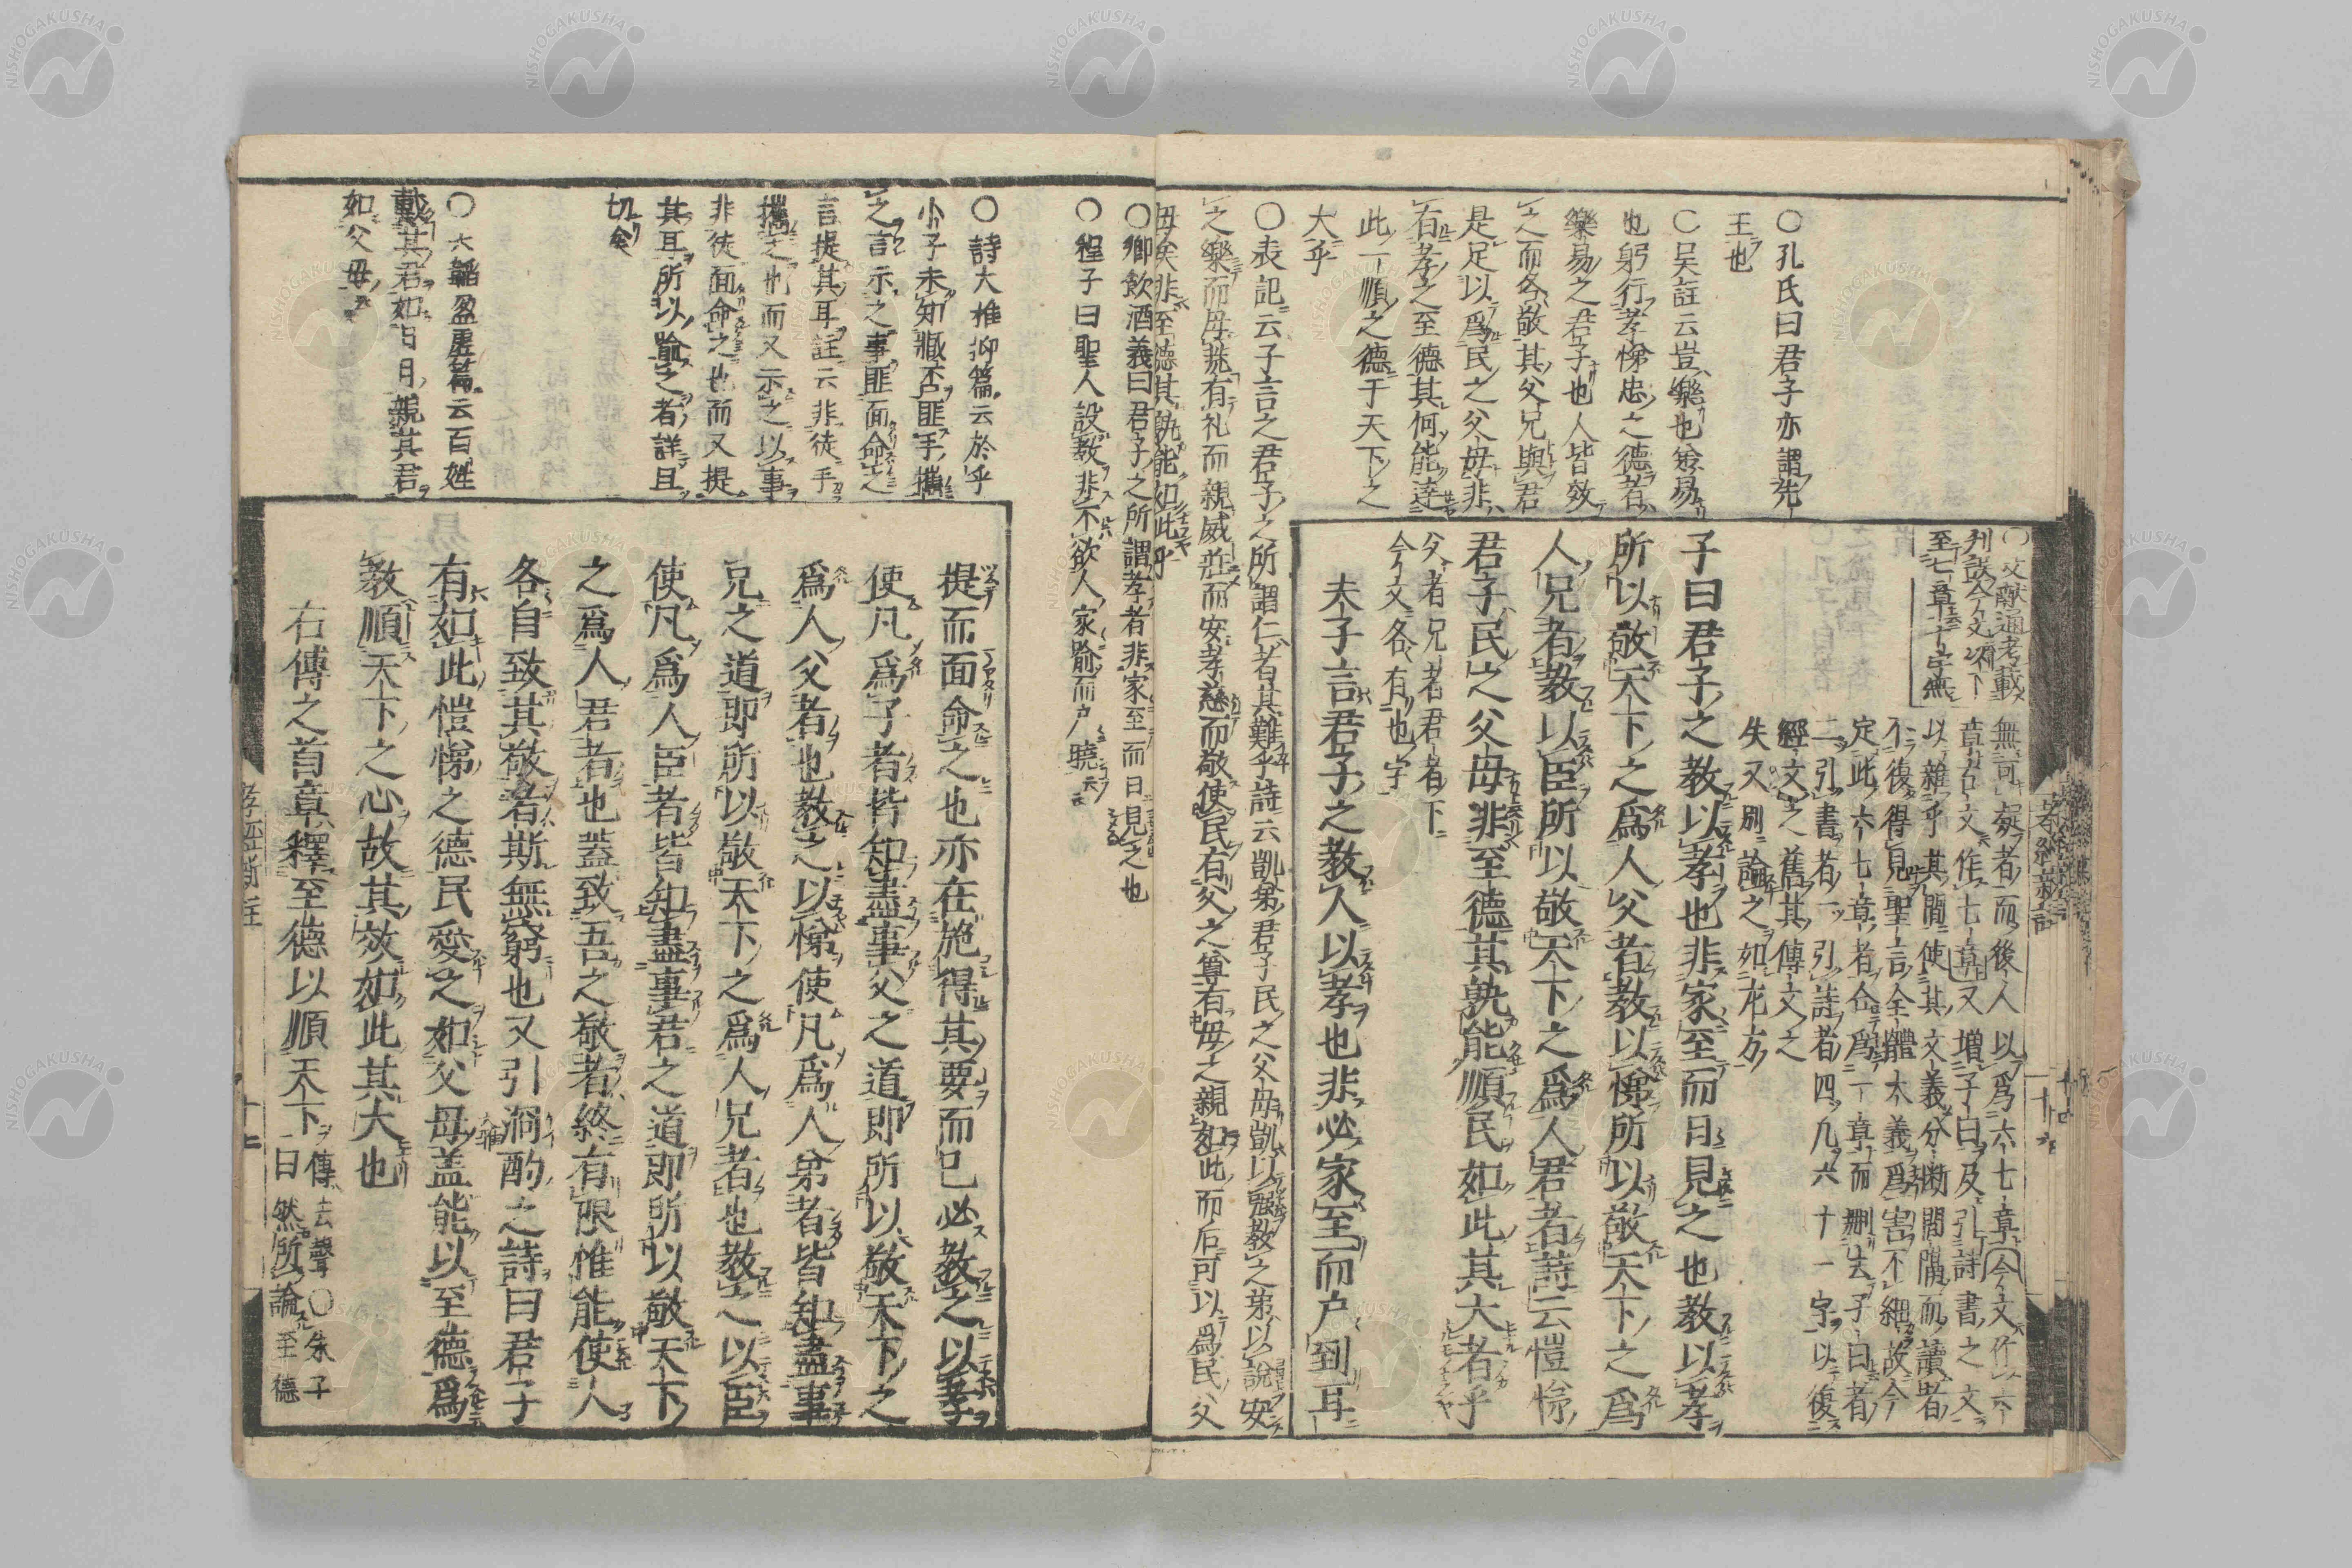 〇孔氏曰君子亦謂先
王也
〇吴註云豈樂也㑒易
也躬行孝悌忠之德者
樂易之君子也人皆效
之而各敬其父兄與君
是足以爲民之父母非
右孝之至德其何能逹
此一順之德于天下之
大乎
〇表記云子言之君子之所謂仁者其難乎詩云凱弟君子民之父母凱以强教之弟以說安
之樂而毋荒有礼而親威莊而安孝慈而敬使民有父之尊有母之親如此而后可以爲民父
母矣非至德其孰能如此乎
〇鄉飲酒義曰君子之所謂孝者非家至而日見之也
〇程子曰聖人設教非不欲人家喻而户曉云云
〇文獻通考載
至七章十字無
無可疑者而後人以爲六七章今文作六
章古文作七章又增子曰及引詩書之文
以雜乎其間使其文義分断間隔而讀者
不復得見聖言全體大義爲害不細故今
定此六七章者合爲一章而刪去子曰者
二引書者一引詩者四凡六十一字以復
經文之舊其傳文之
失又別論之如左方
子曰君子之教以孝也非家至而日見之也教以孝
所以敬天下之爲人父者教以悌所以敬天下之爲
人兄者教以臣所以敬天下之爲人君者詩云愷悌
君子民之父母非至德其孰能順民如此其大者乎
父者兄者君者下
今文各有也字
夫子言君子之教人以孝也非必家至而户到耳
孝經新註
〇詩大雅抑篇云於乎
小子未知臧否匪手攜
之言示之事匪面命之
言提其耳註云非徒手
攜之也而又示之以事
非徒面命之也而又提
其耳所以喻之者詳且
切矣
〇六韜盈虛篇云百姓
戴其君如日月親其君
如父母
提而面命之也亦在施得其要而已必教之以孝
使凡爲子者皆知盡事父之道即所以敬天下之
爲人父者也教之以悌使凡爲人弟者皆知盡事
兄之道即所以敬天下之爲人兄者也教之以臣
使凡爲人臣者皆知盡事君之道即所以敬天下
之爲人君者也蓋致吾之敬者終有限惟能使人
各自致其敬者斯無窮也又引泂酌之詩曰君子
有如此愷悌之德民愛之如父母蓋能以至德爲
教順天下之心故其效如此其大也
右傳之首章釋至德以順天下
傳去聲〇朱子
曰然所論至德
孝經新註